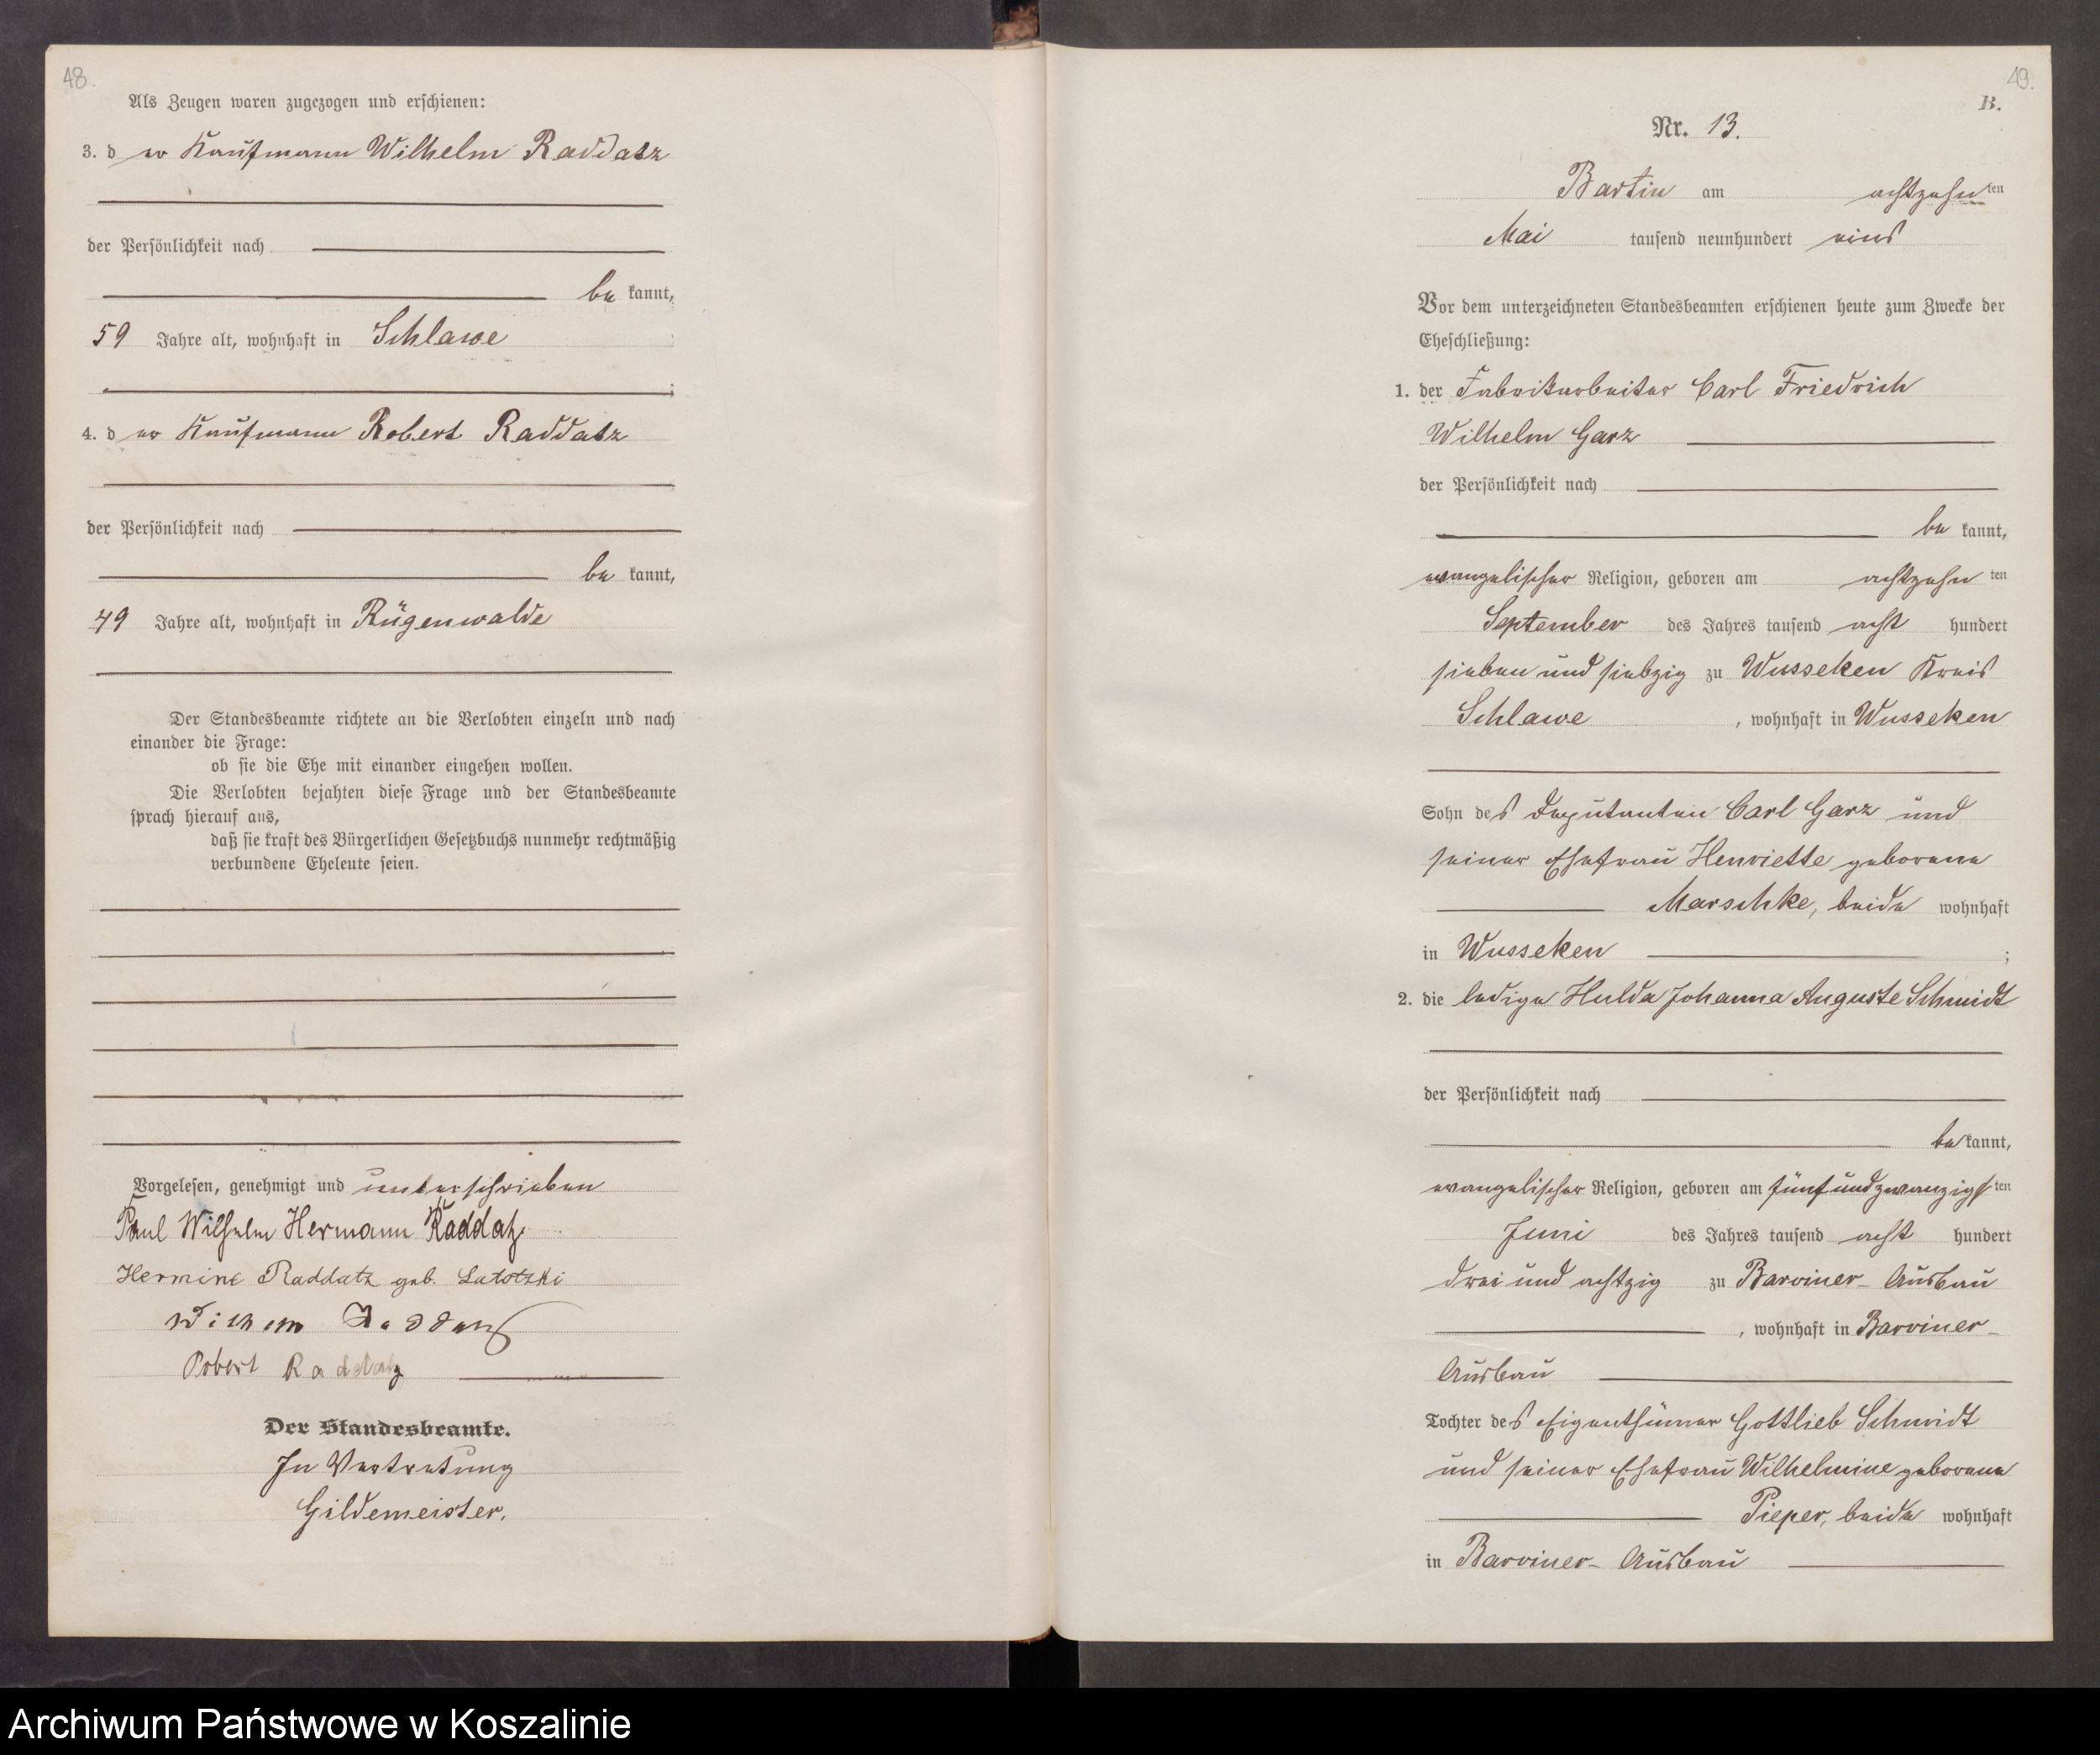 48.
Als Zeugen waren zugezogen und erschienen:
3. der Kaufmann Wilhelm Raddatz
der Persönlichkeit nach
be kannt,
59 Jahre alt, wohnhaft in Schlawe
;
4. der Kaufmann Robert Raddatz
der Persönlichkeit nach
be kannt,
49 Jahre alt, wohnhaft in Rügenwalde
Der Standesbeamte richtete an die Verlobten einzeln und nach
einander die Frage:
ob sie die Ehe mit einander eingehen wollen.
Die Verlobten bejahten diese Frage und der Standesbeamte
sprach hierauf aus,
daß sie kraft des Bürgerlichen Gesetzbuchs nunmehr rechtmäßig
verbundene Eheleute seien.
Vorgelesen, genehmigt und unterschrieben
Paul Wilhelm Hermann Raddatz.
Hermine Raddatz geb. Latotzki
Robert Raddatz
Der Standesbeamte.
In Vertretung
Gildemeister.
49.
B.
Nr. 13.
Bartin am achtzehnten
Mai tausend neunhundert eins
Vor dem unterzeichneten Standesbeamten erschienen heute zum Zwecke der
Eheschließung:
1. der Fabrikarbeiter Carl Friedrich
Wilhelm Garz
der Persönlichkeit nach
be kannt,
evangelischer Religion, geboren am achtzehn ten
September des Jahres tausend acht hundert
sieben und siebzig zu Wusseken Kreis
Schlawe, wohnhaft in Wusseken
Sohn des Deputanten Carl Garz und
seiner Ehefrau Henriette geborene
Marschke, beide wohnhaft
in Wusseken ;
2. die ledige Hulda Johanna Auguste Schmidt
der Persönlichkeit nach
be kannt,
evangelischer Religion, geboren am fünf und zwanzigsten
Juni des Jahres tausend acht hundert
drei und achtzig zu Barviner- Ausbau
, wohnhaft in Barviner-
Ausbau
Tochter des Eigenthümer Gottlieb Schmidt
und seiner Ehefrau Wilhelmine geborene
Pieper, beide wohnhaft
in Barviner- Ausbau
Archiwum Państwowe w Koszalinie